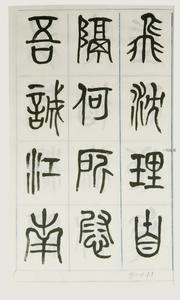 飛沈理自
隔何所慰
吾誠江南